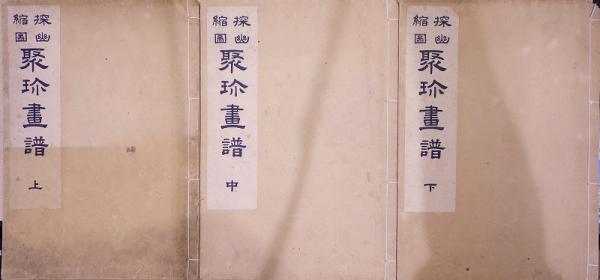 探幽
縮圖
聚珍畫譜
上
探幽
縮圖
聚珍畫譜
中
探幽
縮圖
聚珍畫譜
下